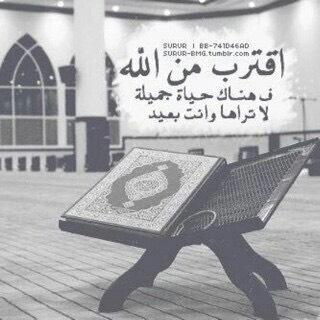 SURUR | BB-741D46AD
SURUR-BMG.tumblr.com
اقترب من الله
ف هناك حياة جميلة
لا تراها وانت بعيد